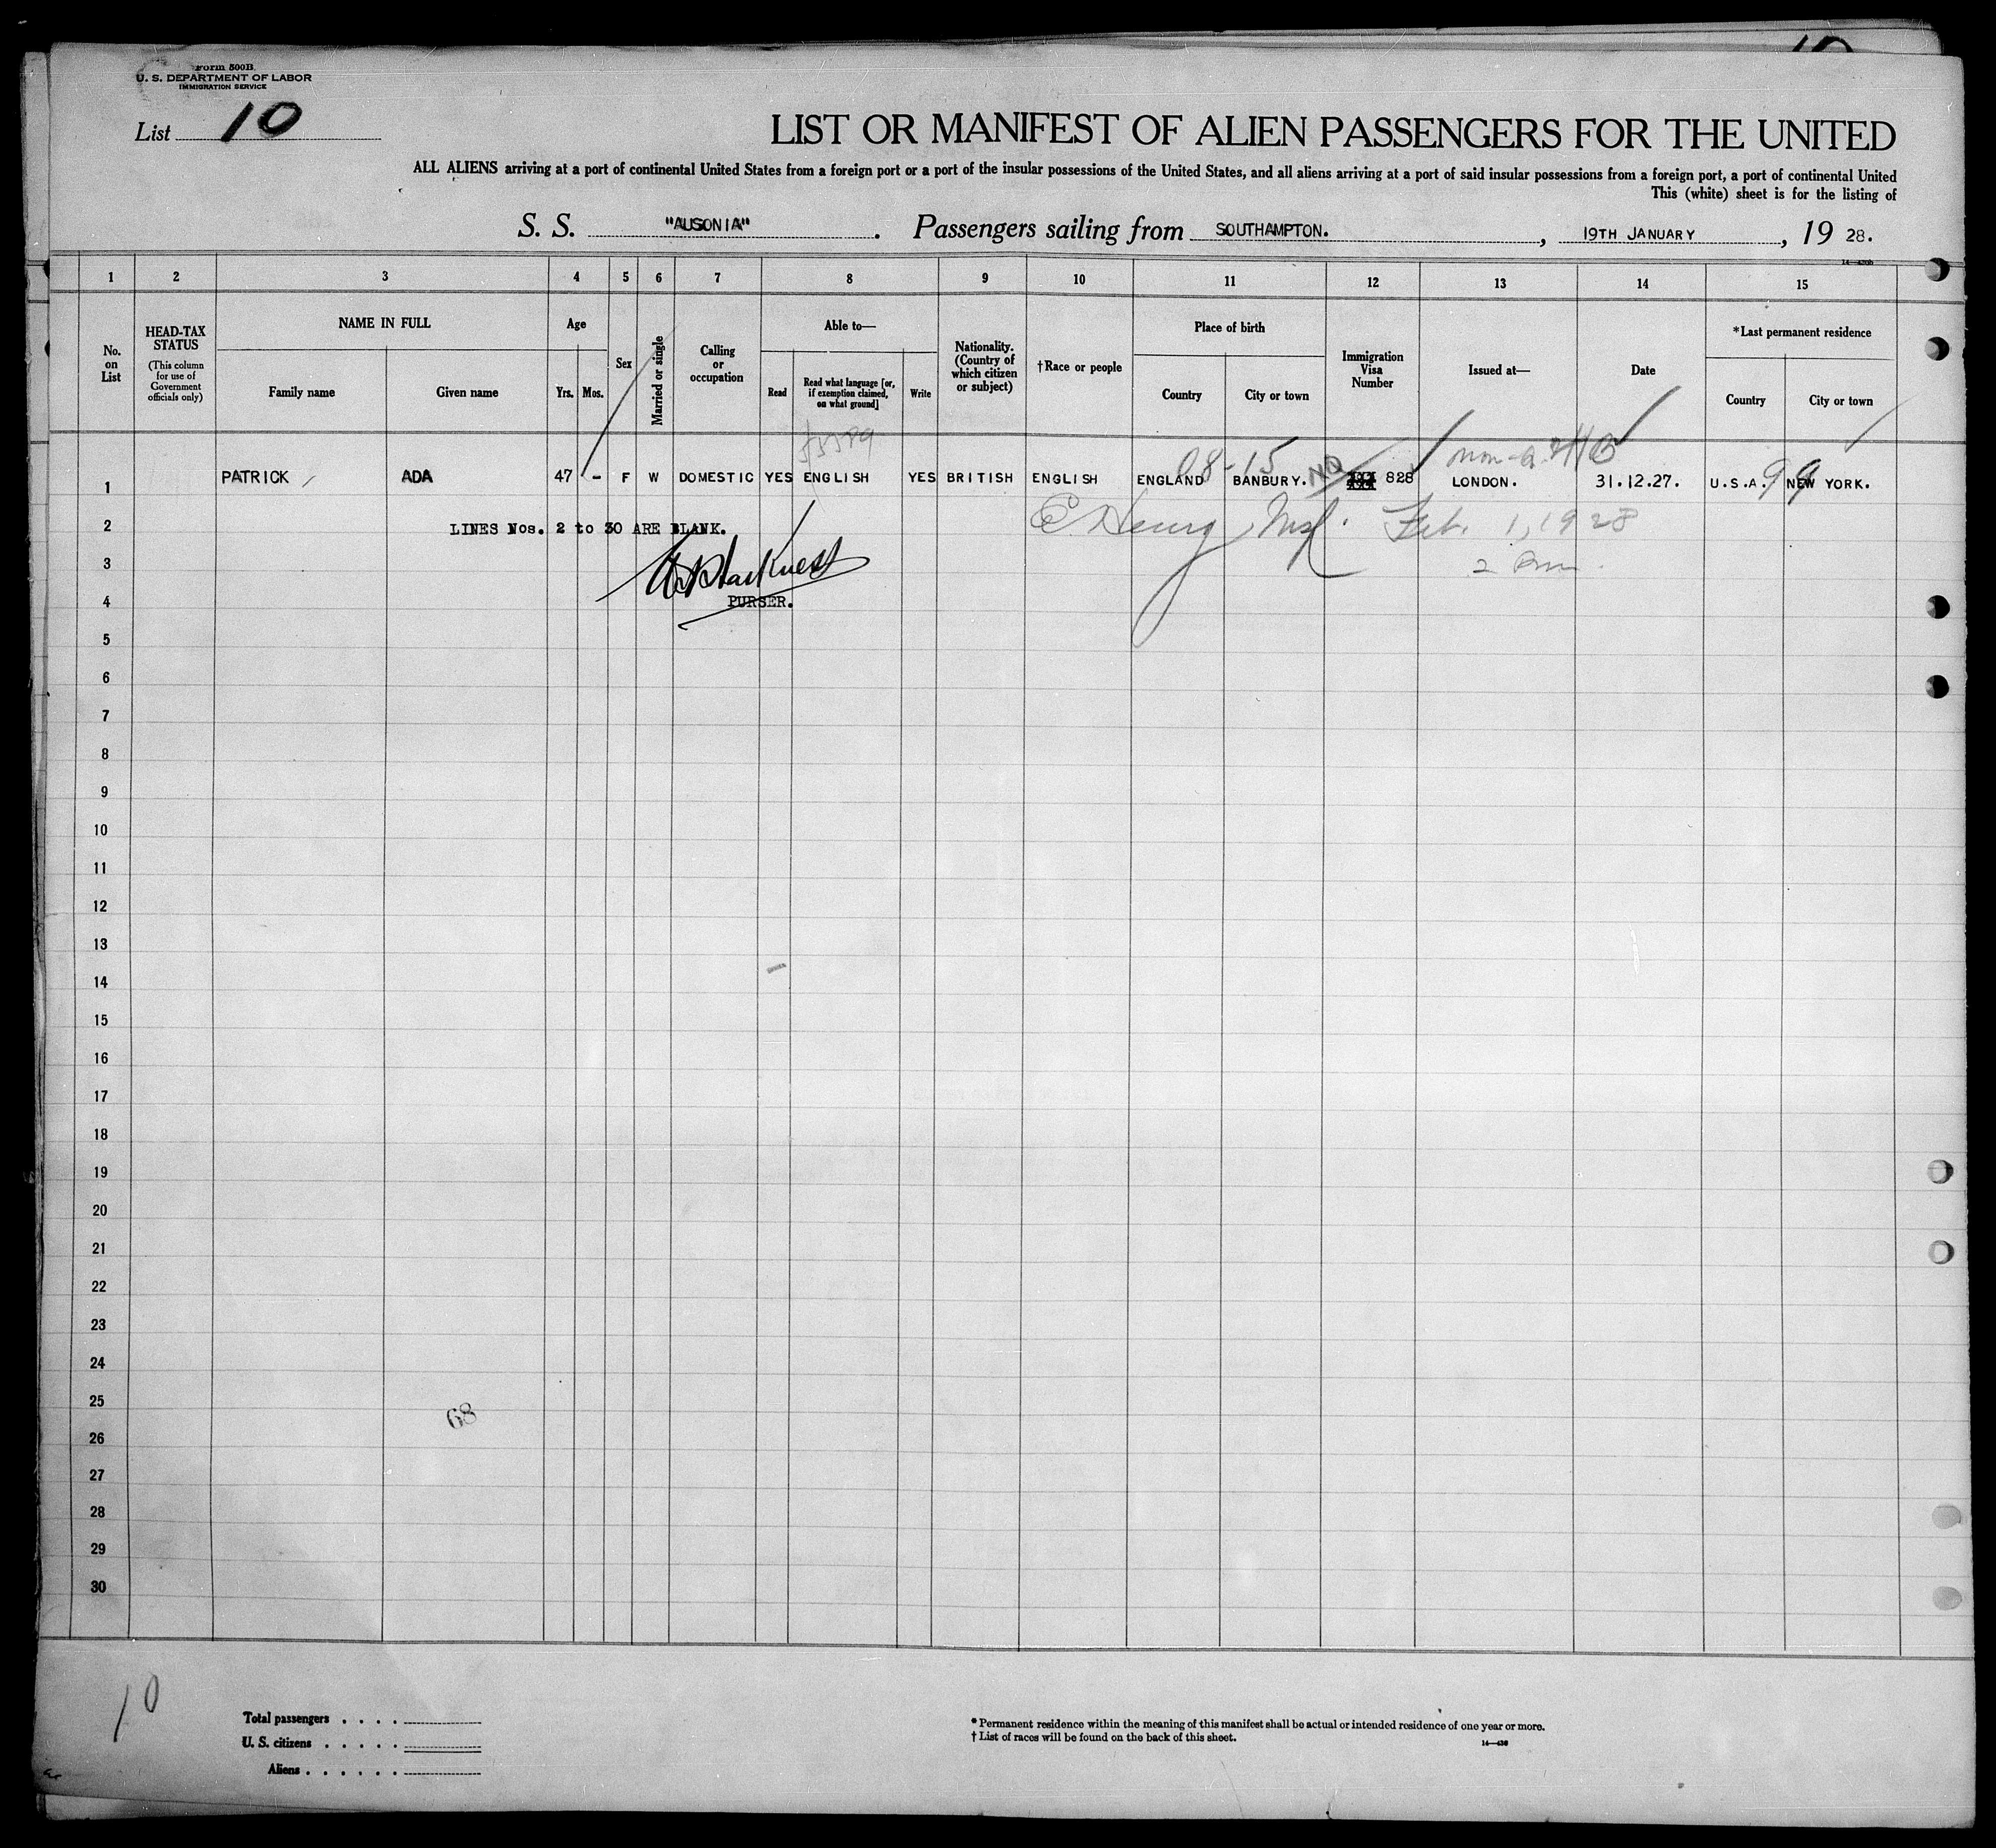 Form 500B
U. S. DEPARTMENT OF LABOR
IMMIGRATION SERVICE
List 10
LIST OR MANIFEST OF ALIEN PASSENGERS FOR THE UNITED
ALL ALIENS arriving at a port of continental United States from a foreign port or a port of the insular possessions of the United States, and all aliens arriving at a port of said insular possessions from a foreign port, a port of continental United
This (white) sheet is for the listing of
S. S. "AUSONIA". Passengers sailing from SOUTHAMPTON., 19TH JANUARY, 19 28.
1 2 3 4 5 6 7 8 9 10 11 12 13 14 15
No. on List
HEAD-TAX STATUS
(This column for use of Government officials only)
NAME IN FULL
Family name Given name
Age
Yrs. Mos.
Sex
Married or single
Calling or occupation
Able to—
Read
Read what language [or, if exemption claimed, on what ground]
Write
Nationality. (Country of which citizen or subject)
†Race or people
Place of birth
Country City or town
Immigration Visa Number
Issued at—
Date
*Last permanent residence
Country City or town
08-15
1 PATRICK ADA 47 - F W DOMESTIC YES ENGLISH YES BRITISH ENGLISH ENGLAND BANBURY. NQ 828 LONDON. 31.12.27. U.S.A. 99 NEW YORK.
2 LINES Nos. 2 to 30 ARE BLANK. Feb. 1, 1928
3
4 PURSER.
5
6
7
8
9
10
11
12
13
14
15
16
17
18
19
20
21
22
23
24
25
68
26
27
28
29
30
10
Total passengers . . . .
U. S. citizens . . . . .
Aliens . . . . . .
* Permanent residence within the meaning of this manifest shall be actual or intended residence of one year or more.
† List of races will be found on the back of this sheet.